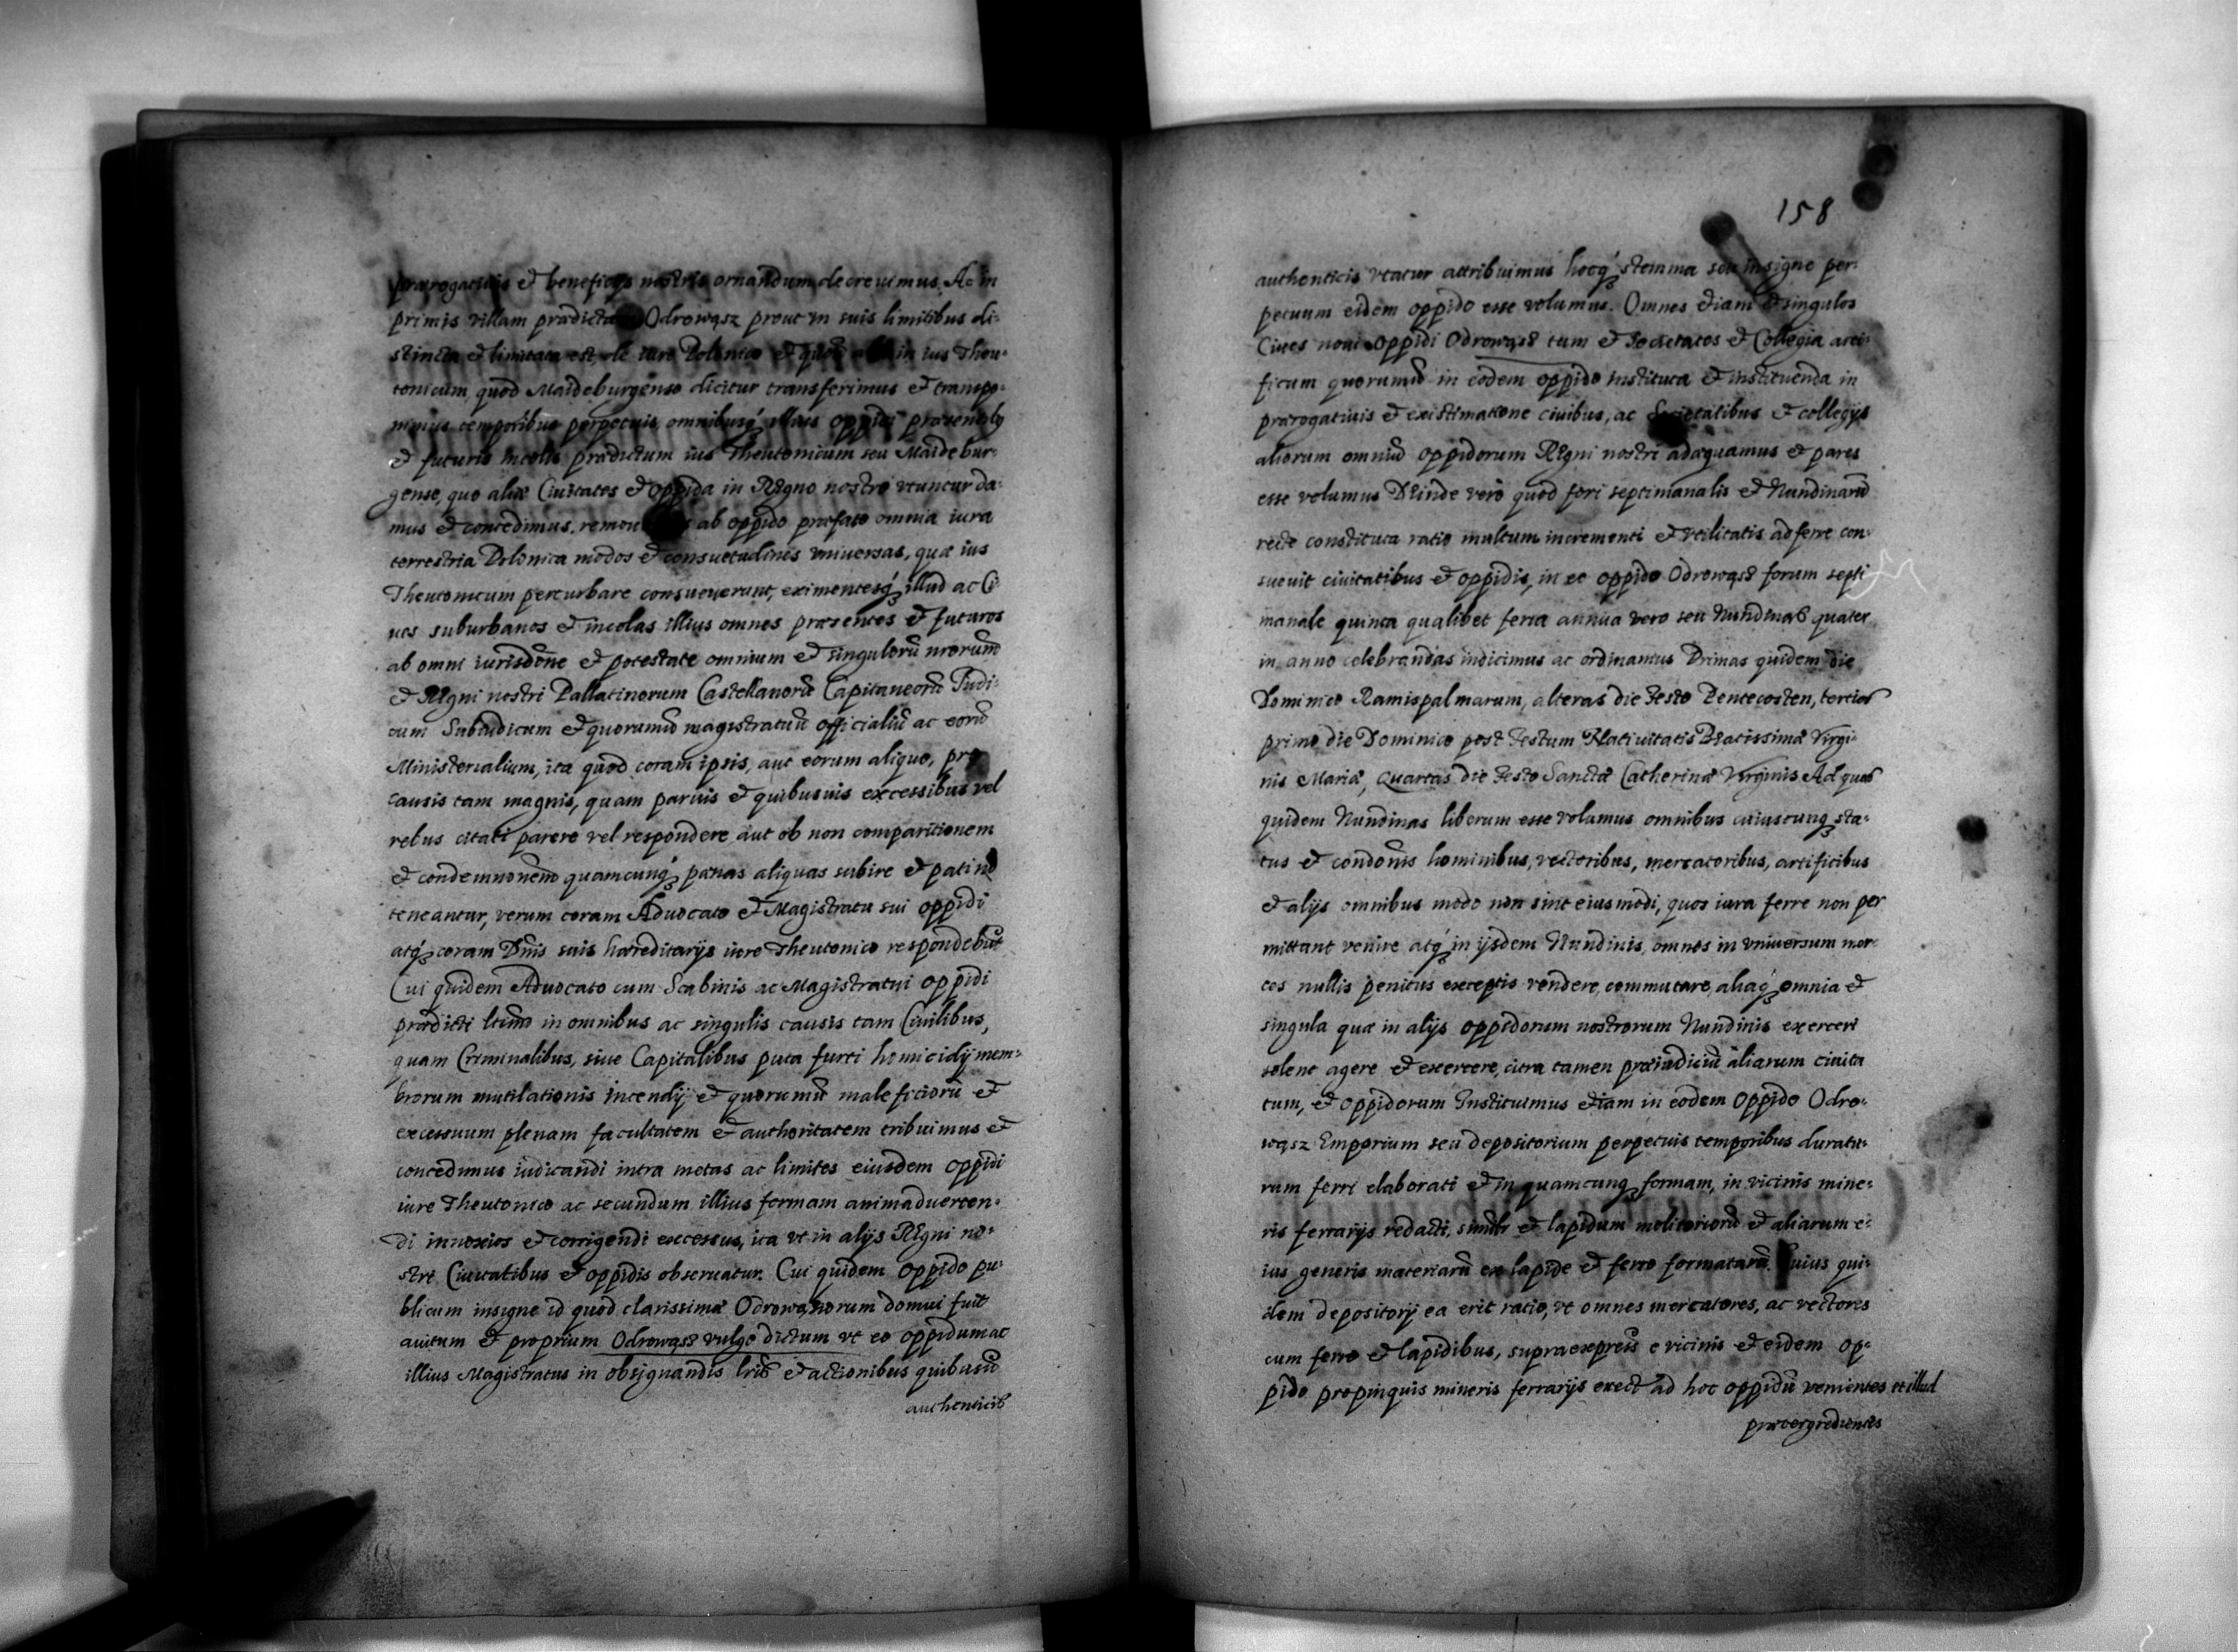 prærogatiuis et beneficijs nostris ornandum decreuimus. Ac in
primis villam prædictam Odrowąsz prout in suis limitibus di-
stincta et limitata est, de iure Polonico et quouis alio in ius Theu-
tonicum quod Maideburgense dicitur transferimus et transpo-
nimus temporibus perpetuis omnibusq́ illius oppidi præsentib9
et futuris incolis prædictum ius Theutonicum seu Maidebur-
gense, quo aliæ Ciuitates et oppida in Regno nostro vtuntur da-
mus et concedimus. ab oppido præfato omnia iura
terrestria Polonica modos et consuetudines vniuersas, quæ ius
Theutonicum perturbare consueuerunt, eximentesq́ illud ac Ci-
ues suburbanos et incolas illius omnes præsentes et futuros
ab omni iurisdōne et potestate omnium et singulorū nrorum
et Regni nostri Pallatinorum Castellanorū Capitaneorū Iudi-
cum Subiudicum et quorumuis magistratuū officialiū ac eorū
Ministerialium, ita quod coram ipsis, aut eorum aliquo, pro
causis tam magnis, quam paruis et quibusuis excessibus vel
rebus citati parere vel respondere aut ob non comparitionem
et condemnōnem quamcunq́ pænas aliquas subire et pati nō
teneantur, verum coram Aduocato et Magistratu sui oppidi
atq́ coram Dnis suis hæreditarijs iure Theutonico respondebūt
Cui quidem Aduocato cum Scabinis ac Magistratui oppidi
prædicti ltimo in omnibus ac singulis causis tam Ciuilibus,
quam Criminalibus, siue Capitalibus puta furti homicidij mem-
brorum mutilationis incendij et quorumuis maleficiorū et
excessuum plenam facultatem et authoritatem tribuimus et
concedimus iudicandi intra metas ac limites eiusdem oppidi
iure Theutonico ac secundum illius formam animaduerten-
di in noxios et corrigendi excessus, ita vt in alijs Regni no-
stri Ciuitatibus et oppidis obseruatur. Cui quidem oppido pu-
blicum insigne id quod clarissimæ Odrowąsiorum domui fuit
auitum et proprium Odrowąsz vulgo dictum vt eo oppidum ac
illius Magistratus in obsignandis lris et actionibus quibusuis
authenticis
158
authenticis vtatur attribuimus hocq́ stemma seu insigne per-
petuum eidem oppido esse volumus. Omnes etiam et singulos
Ciues noui oppidi Odrowąsz tum et Societates et Collegia arti-
ficum quorumuis in eodem oppido instituta et instituenda in
prærogatiuis et existimatione ciuibus, ac Societatibus et collegijs
aliorum omniū oppidorum Regni nostri adæquamus et pares
esse volumus Deinde vero quod fori septimanalis et Nundinarū
recte constituta ratio multum incrementi et vtilitatis adferre con-
sueuit ciuitatibus et oppidis, in eo oppido Odrowąsz forum septi
manale quinta qualibet feria annua vero seu Nundinas quater
in anno celebrandas indicimus ac ordinamus Primas quidem die
Dominico Ramispalmarum, alteras die festo Pentecosten, tertias
primo die Dominico post festum Natiuitatis Beatissimæ Virgi-
nis Mariæ, Quartas die festo Sanctæ Catherinæ Virginis Ad quas
quidem Nundinas liberum esse volumus omnibus cuiuscunq́ sta-
tus et condonis hominibus, vectoribus, mercatoribus, artificibus
et alijs omnibus modo non sint eiusmodi, quos iura ferre non per
mittant venire atq́ in ijsdem Nundinis, omnes in vniuersum mer-
ces nullis penitus exceptis vendere, commutare, aliaq́ omnia et
singula quæ in alijs oppidorum nostrorum Nundinis exerceri
solent agere et exercere, citra tamen præiudiciū aliarum ciuita
tum, et oppidorum Instituimus etiam in eodem oppido Odro-
wąsz Emporium seu depositorium perpetuis temporibus duratu-
rum ferri elaborati et in quamcunq́ formam, in vicinis mine-
ris ferrarijs redacti, similr et lapidum molitoriorū et aliarum e-
ius generis materiarū ex lapide et ferro formatarū. Cuius qui-
dem depositorij ea erit ratio, vt omnes mercatores, ac vectores
cum ferro et lapidibus, supraexpreis e vicinis et eidem op-
pido propinquis mineris ferrarijs exect ad hoc oppidū venientes et illud
prætergredientes